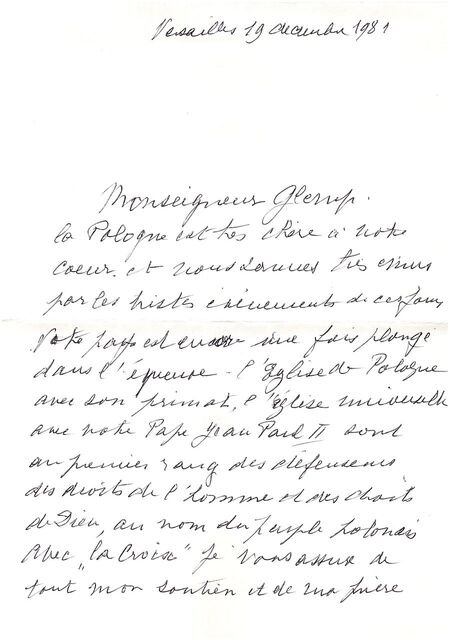 Versailles 19 decembre 1981
Monseigneur Glemp.
la Pologne est très chère à notre
coeur. et nous sommes très émus
par les tristes événements de ces jours
Votre pays est encore une fois plongé
dans l'épreuve - l'Eglise de Pologne
avec son primat, l'Église universelle
avec notre Pape Jean Paul II sont
au premier rang des défenseurs
des droits de l'homme et des droits
de Dieu, au nom du peuple polonais
avec "la Croix" je vous assure de
tout mon soutien et de ma prière